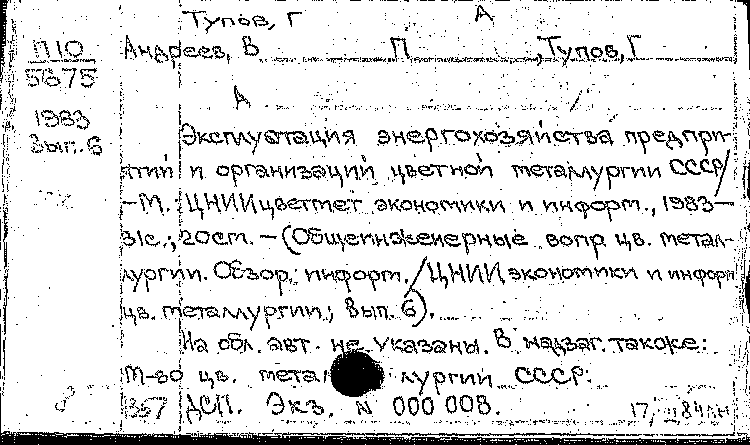 Тупов, Г А
П10
5675
Андреев, В П , Тупов, Г
А
1983
Вып. 6
Эксплуатация энергохозяйства предпри-
ятий и организаций цветной металлургии СССР/
–М.: ЦНИИцветмет экономики и информ., 1983–
31с.; 20см. – (Общеинженерные вопр. цв. метал-
лургии. Обзор. информ. / ЦНИИ экономики и информ.
цв. металлургии; Вып. 6).
На обл. авт. не указаны. В надзаг. также:
М-во цв. металлургии СССР.
ДСП. Экз. N 000 008.